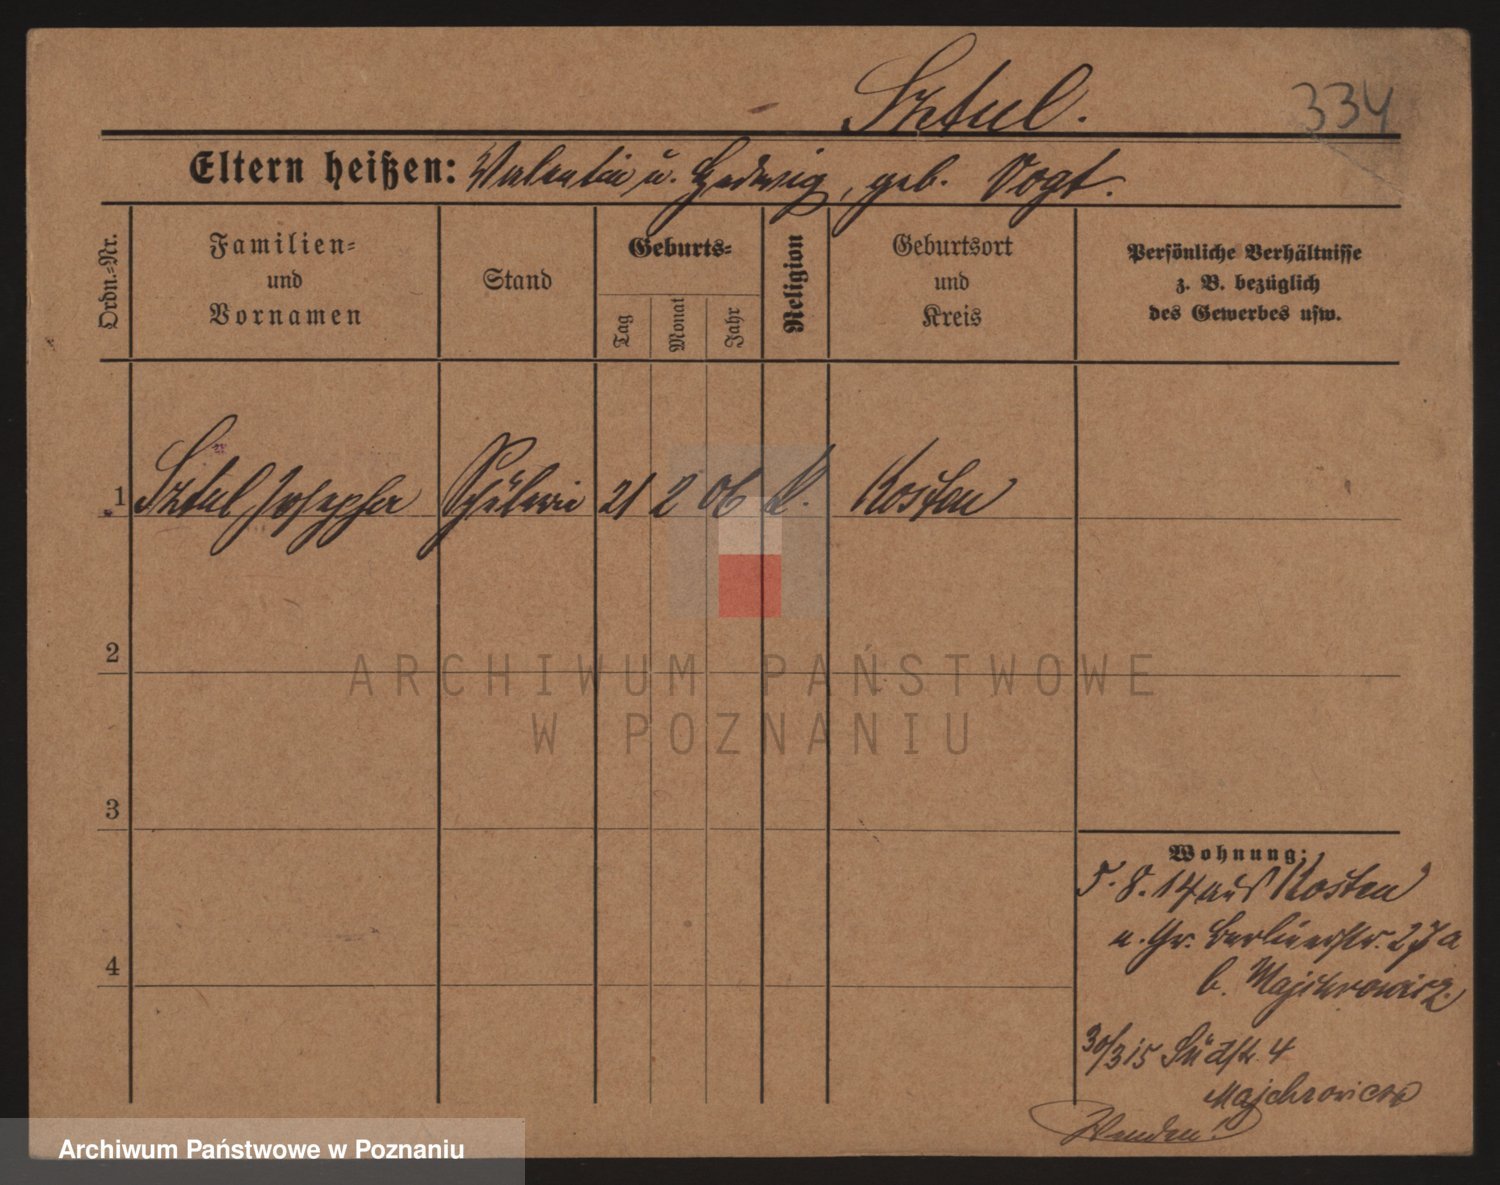 Sztul.
334
Eltern heißen: Valentin u. Hedwig, geb. Vogt.
Ordn.-Nr.
Familien- und Vornamen
Stand
Geburts-
Tag
Monat
Jahr
Religion
Geburtsort und Kreis
Persönliche Verhältnisse
z. B. bezüglich
des Gewerbes usw.
1 Sztul Josepha Schülerin 21 2 06 k. Kosten
2
3
4
Wohnung:
5.8.14 aus Kosten
n. Gr. Berlinerstr. 27a
b. Majchrowicz.
30/3 15 Südstr. 4
Majchrowicz
ARCHIWUM PAŃSTWOWE
W POZNANIU
Archiwum Państwowe w Poznaniu